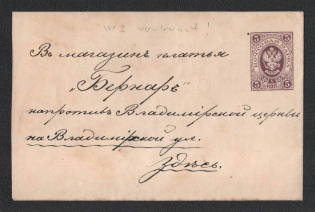 Въ магазинъ платья
„Бернаръ"
напротивъ Владимірской церкви
на Владимірской ул.
Здѣсь.
5 5
5 5